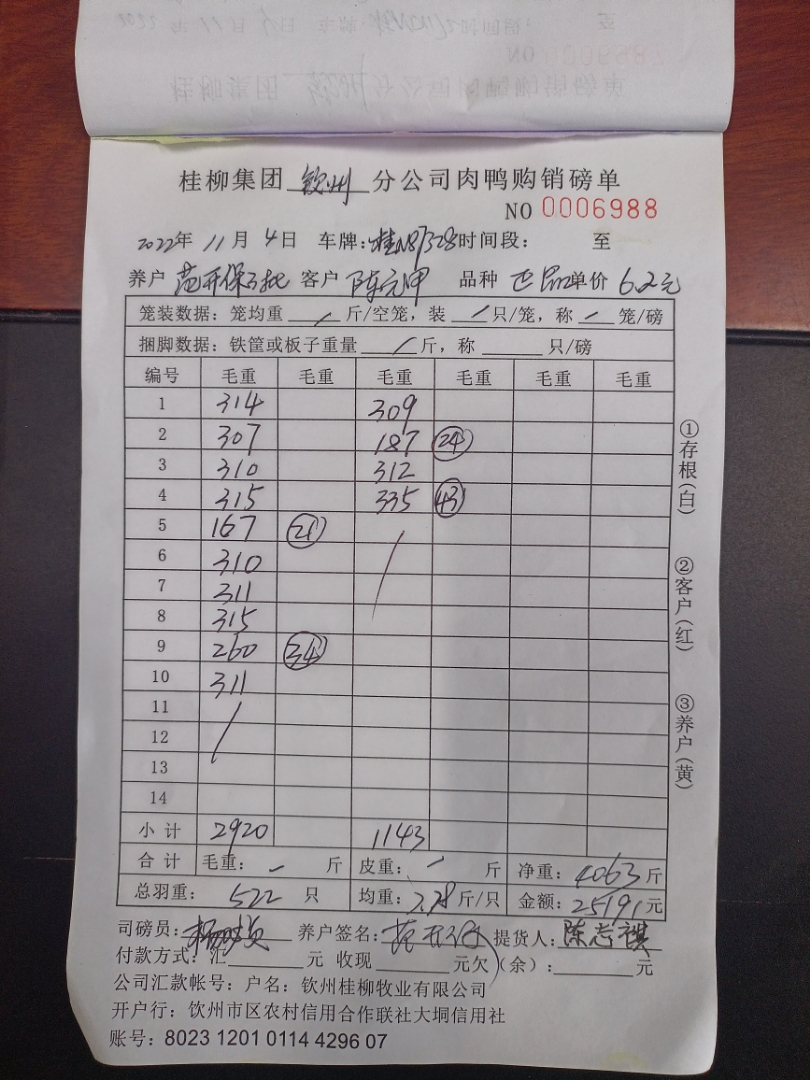 桂柳集团 钦州 分公司肉鸭购销磅单
NO 0006988
2022年 11月 4日 车牌:桂N81328 时间段: 至
养户 范开保 客户 陈元甲 品种 正品 单价 6.2元
笼装数据:笼均重 / 斤/空笼,装 / 只/笼,称 / 笼/磅
捆脚数据:铁筐或板子重量 / 斤,称 只/磅
编号 毛重 毛重 毛重 毛重 毛重 毛重
1 314 309
2 307 187 24
3 310 312
4 315 335 43
5 167 21
6 310 /
7 311
8 315
9 260 34
10 311
11 /
12
13
14
小计 2920 1143
合计 毛重: - 斤 皮重: - 斤 净重: 4063斤
总羽重: 522 只 均重: 7.78斤/只 金额: 25191元
司磅员: 养户签名: 范开保 提货人: 陈志祺
付款方式:汇 元 收现 元欠(余): 元
公司汇款帐号:户名:钦州桂柳牧业有限公司
开户行:钦州市区农村信用合作联社大垌信用社
账号:8023 1201 0114 4296 07
①存根(白)
②客户(红)
③养户(黄)